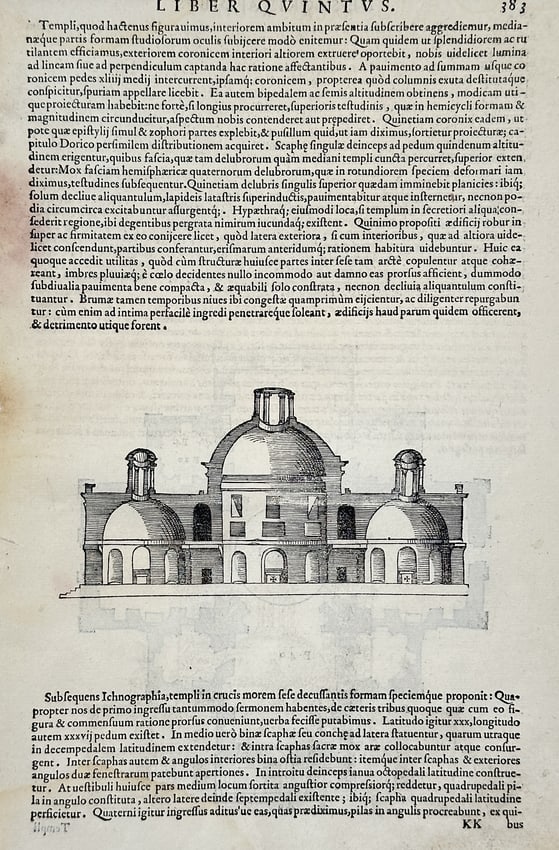 LIBER QVINTVS. 383
Templi, quod hactenus figurauimus, interiorem ambitum in præsentia subscribere aggrediemur, media-
næque partis formam studiosorum oculis subijcere modò enitemur: Quam quidem ut splendidiorem ac ru
tilantem efficiamus, exteriorem coronicem interiori altiorem extruere oportebit, nobis uidelicet lumina
ad lineam siue ad perpendiculum captanda hac ratione affectantibus. A pauimento ad summam usque co
ronicem pedes xliiij medij intercurrent, ipsamq; coronicem, propterea quòd columnis exuta destitutaque
conspicitur, spuriam appellare licebit. Ea autem bipedalem ac semis altitudinem obtinens, modicam uti-
que proiecturam habebit: ne fortè, si longius procurreret, superioris testudinis, quæ in hemicycli formam &
magnitudinem circumducitur, aspectum nobis contenderet aut præpediret. Quinetiam coronix eadem, ut
pote quæ epistylij simul & zophori partes explebit, & pusillum quid, ut iam diximus, sortietur proiecturæ; ca-
pitulo Dorico persimilem distributionem acquiret. Scaphę singulæ deinceps ad pedum quindenum altitu-
dinem erigentur, quibus fascia, quæ tam delubrorum quàm mediani templi cuncta percurret, superior exten
detur: Mox fasciam hemisphæricæ quaternorum delubrorum, quæ in rotundiorem speciem deformari iam
diximus, testudines subsequentur. Quinetiam delubris singulis superior quædam imminebit planicies: ibiq;
solum decliue aliquantulum, lapideis latastris superinductis, pauimentabitur atque insternetur, necnon po-
dia circumcirca excitabuntur assurgentq;. Hypæthraq; eiusmodi loca, si templum in secretiori aliqua con-
sederit regione, ibi degentibus pergrata nimirum iucundaq; existent. Quinimo propositi ædificij robur in
super ac firmitatem ex eo conijcere licet, quòd latera exteriora, si cum interioribus, quæ ad altiora uide-
licet conscendunt, partibus conferantur, erismarum anteridumq; rationem habitura uidebuntur. Huic ea
quoque accedit utilitas, quòd cùm structuræ huiusce partes inter sese tam arctè copulentur atque cohæ-
reant, imbres pluuiæq; è cœlo decidentes nullo incommodo aut damno eas prorsus afficient, dummodo
subdiualia pauimenta bene compacta, & æquabili solo constrata, necnon decliuia aliquantulum consti-
tuantur. Brumæ tamen temporibus niues ibi congestæ quamprimùm eijcientur, ac diligenter repurgabun
tur: cùm enim ad intima perfacilè ingredi penetrareque soleant, ædificijs haud parum quidem officerent,
& detrimento utique forent.
Subsequens Ichnographia, templi in crucis morem sese decussantis formam speciemque proponit: Qua-
propter nos de primo ingressu tantummodo sermonem habentes, de cæteris tribus quoque quæ cum eo fi-
gura & commensuum ratione prorsus conueniunt, uerba fecisse putabimus. Latitudo igitur xxx, longitudo
autem xxxvij pedum existet. In medio uerò binæ scaphæ seu conchę ad latera statuentur, quarum utraque
in decempedalem latitudinem extendetur: & intra scaphas sacræ mox aræ collocabuntur atque consur-
gent. Inter scaphas autem & angulos interiores bina ostia residebunt: itemque inter scaphas & exteriores
angulos duæ fenestrarum patebunt apertiones. In introitu deinceps ianua octopedali latitudine construe-
tur. At uestibuli huiusce pars medium locum sortita angustior compressiorq; reddetur, quadrupedali pi-
la in angulo constituta, altero latere deinde septempedali existente; ibiq; scapha quadrupedali latitudine
perficietur. Quaterni igitur ingressus aditus'ue eas, quas prædiximus, pilas in angulis procreabunt, ex qui-
KK bus